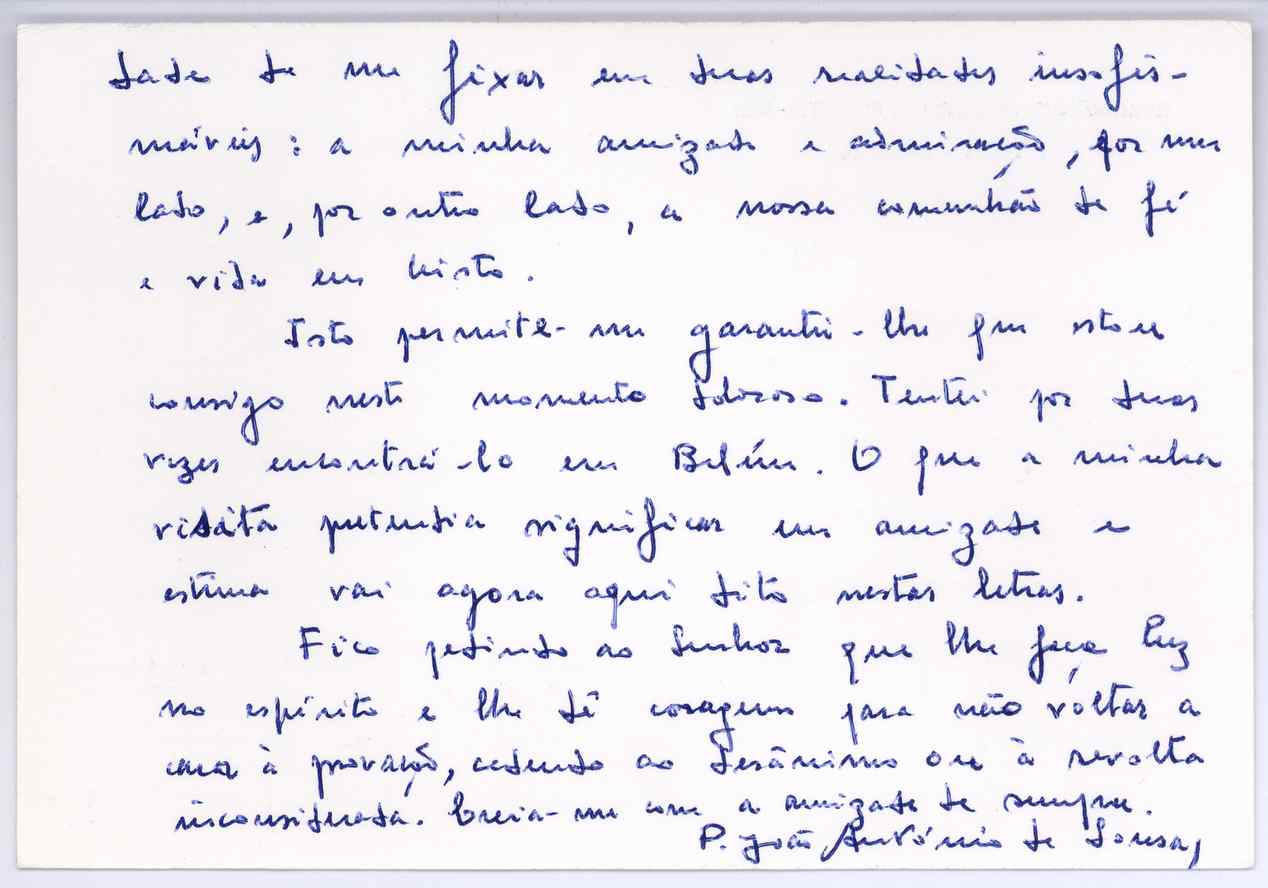 dade de me fixar em duas realidades insofis-
máveis: a minha amizade e admiração, por um
lado, e, por outro lado, a nossa comunhão de fé
e vida em Cristo.
Isto permite-me garantir-lhe que estou
consigo neste momento doloroso. Tentei por duas
vezes encontrá-lo em Belém. O que a minha
visita pretendia significar em amizade e
estima vai agora aqui dito nestas letras.
Fico pedindo ao Senhor que lhe faça luz
no espírito e lhe dê coragem para não voltar a
cara à provação, cedendo ao desânimo ou à revolta
inconsiderada. Creia-me com a amizade de sempre.
P. João António de Sousa,